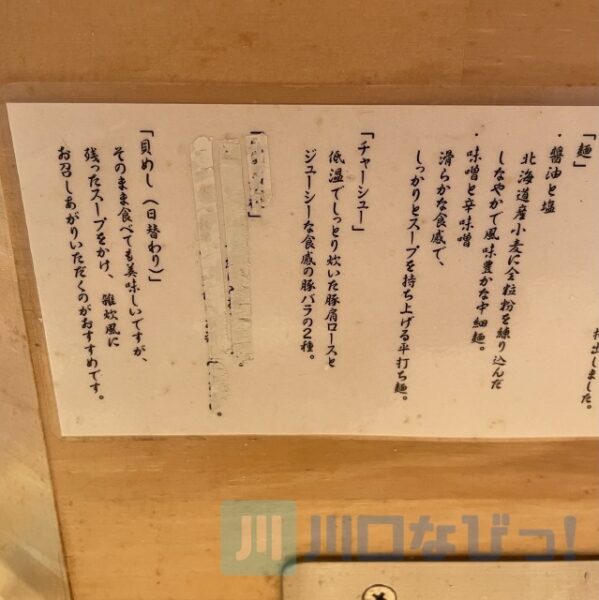 抽出しました。
「麺」
・醤油と塩
北海道産小麦に全粒粉を練り込んだ
しなやかで風味豊かな中細麺。
・味噌と辛味噌
滑らかな食感で、
しっかりとスープを持ち上げる平打ち麺。
「チャーシュー」
低温でしっとり炊いた豚肩ロースと
ジューシーな食感の豚バラの2種。
「貝めし(日替わり)」
そのまま食べても美味しいですが、
残ったスープをかけ、雑炊風に
お召しあがりいただくのがおすすめです。
川口なびっ!